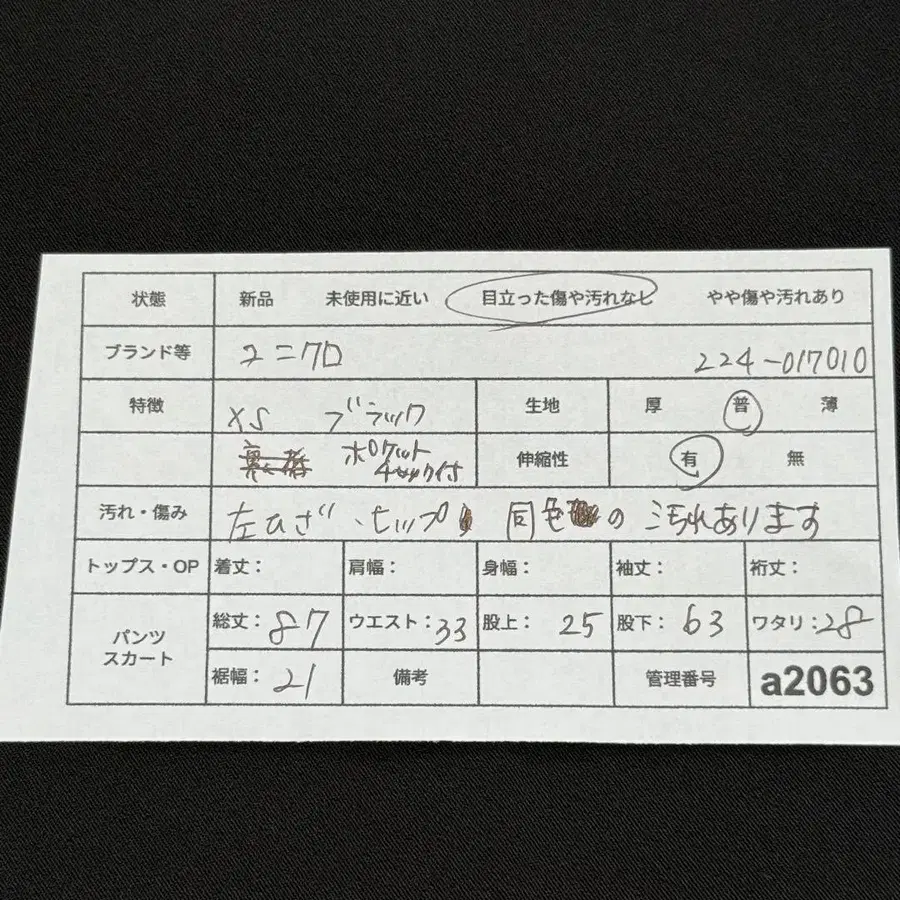 状態 新品 未使用に近い 目立った傷や汚れなし やや傷や汚れあり
ブランド等 ユニクロ 224-017010
特徴 XS ブラック 生地 厚 普 薄
ポケット
チャック付 伸縮性 有 無
汚れ・傷み 左ひざ、ヒップ 同色の汚れあります
トップス・OP 着丈: 肩幅: 身幅: 袖丈: 裄丈:
パンツ
スカート
総丈:87 ウエスト:33 股上:25 股下:63 ワタリ:28
裾幅:21 備考 管理番号 a2063